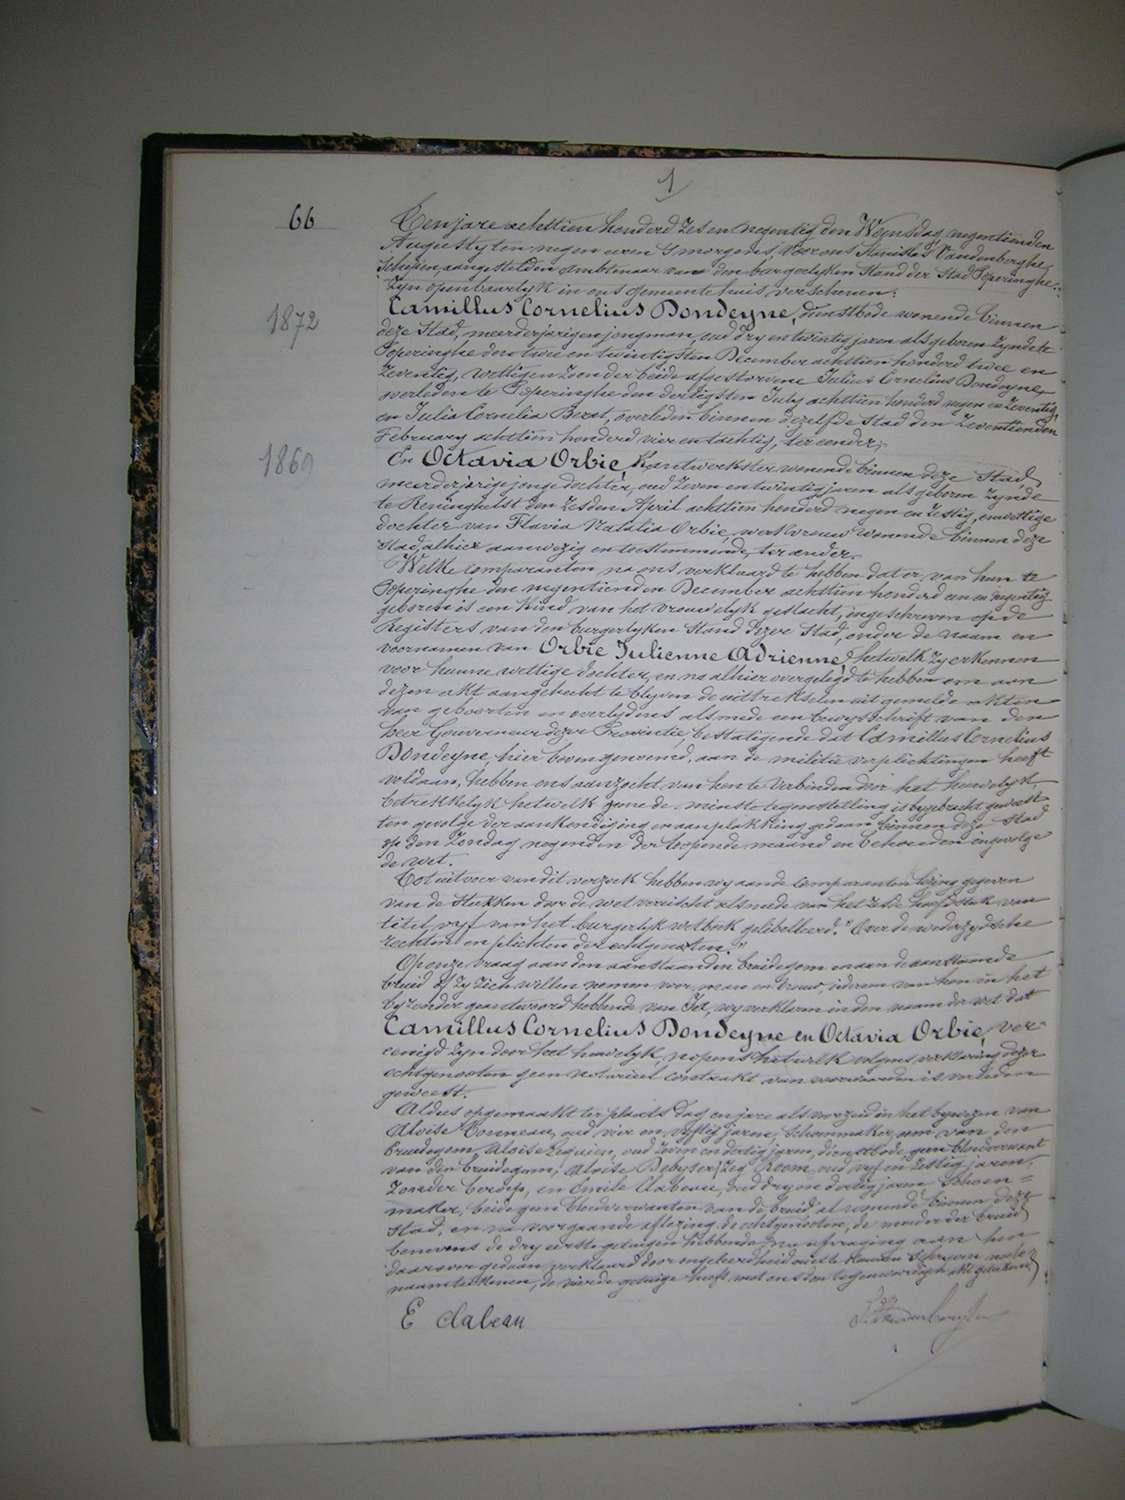 1
66
Ten jare achttien honderd zes en negentig den Woensdag negentienden
Augusty ten negen uren 's morgens, Voor ons Stanislas Vandenberghe,
Schepen aangestelden Ambtenaar van den burgerlyken Stand der Stad Poperinghe,
zyn openbaarlyk in ons gemeentehuis verschenen:
1872
Camillus Cornelius Dondeyne, dienstbode wonende binnen
deze Stad, meerderjarigen jongman, oud dry en twintig jaren als geboren zynde te
Poperinghe den twee en twintigsten December achttien honderd twee en
zeventig, wettigen zoon der beide afgestorvene Julius Cornelius Dondeyne,
overleden te Poperinghe den dertigsten July achttien honderd negen en zeventig,
en Julia Cornelia Bezet, overleden binnen dezelfde Stad den zeventienden
February achttien honderd vier en tachtig, ter eender;
1869
En Octavia Orbie, Kantwerkster wonende binnen deze Stad,
meerderjarige jonge dochter, oud zeven en twintig jaren als geboren zynde
te Reninghelst den zesden April achttien honderd negen en zestig, onwettige
dochter van Flavia Natalia Orbie, werkvrouw wonende binnen deze
Stad, alhier aanwezig en toestemmende, ter ander.
Welke comparanten na ons verklaard te hebben dat er van hun te
Poperinghe den negentienden December achttien honderd een en negentig
geboren is een kind van het vrouwelyk geslacht, ingeschreven op de
Registers van den burgerlyken Stand dezer Stad, onder de naam en
voornamen van Orbie Julienne Adrienne, hetwelk zy erkennen
voor hunne wettige dochter, en na alhier overgelegd te hebben om aan
dezen akt aangehecht te blyven de uittrekselen uit gemelde akten
van geboorten en overlydens alsmede een bewysschrift van den
heer Gouverneur dezer Provincie, bestatigende dat Camillus Cornelius
Dondeyne, hier boven genoemd, aan de militie verplichtingen heeft
voldaan, hebben ons aanzocht van hen te verbinden door het huwelyk,
betrekkelyk hetwelk gene de minste tegenstelling is bygebracht geweest
ten gevolge der aankondiging en aanplakking gedaan binnen deze Stad
op den Zondag negenden der loopende maand en behouden ingevolge
de wet.
Tot uitvoer van dit verzoek hebben wy aan de comparanten lezing gegeven
van de Stukken door de wet vereischt alsmede van het zesde hoofdstuk van
titel vyf van het burgerlyk wetboek gelibelleerd: "Over de wederzydsche
rechten en plichten der echtgenoten."
Op onze vraag aan den aanstaanden bruidegom en aan de aanstaande
bruid of zy zich willen nemen voor man en vrouw, iderem van hen in het
byzonder geantwoord hebbende van Ja, wy verklaren in den naam der wet dat
Camillus Cornelius Dondeyne en Octavia Orbie, ver-
eenigd zyn door het huwelyk, nopens hetwelk volgens verklaring dezer
echtgenooten geen notarieel contrakt van voorwaarden is verleden
geweest.
Aldus opgemaakt ter plaats dag en jare als voorzeid in het bywezen van
Aloise Bonneau, oud vier en vyftig jaren, Schoenmaker, oom van den
bruidegom, Aloise Lequien, oud zeven en dertig jaren, dienstbode, geen bloedverwant
van den bruidegom; Aloise Debyser, zeg Room, oud vyf en zestig jaren,
zonder beroep, en Emile Clabeau, oud dry en dertig jaren Schoen=
maker, beide geen bloedverwanten van de bruid, al wonende binnen deze
Stad, en na voorgaande aflezing de echtgenooten, de moeder der bruid
benevens de dry eerste getuigen hebbende na afvraging aan hen
daarover gedaan, verklaard door ongeleerdheid niet te kunnen schryven noch
naamteekenen, de vierde getuige heeft met ons den tegenwoordigen akt geteekend
E clabeau
S. Vandenberghe